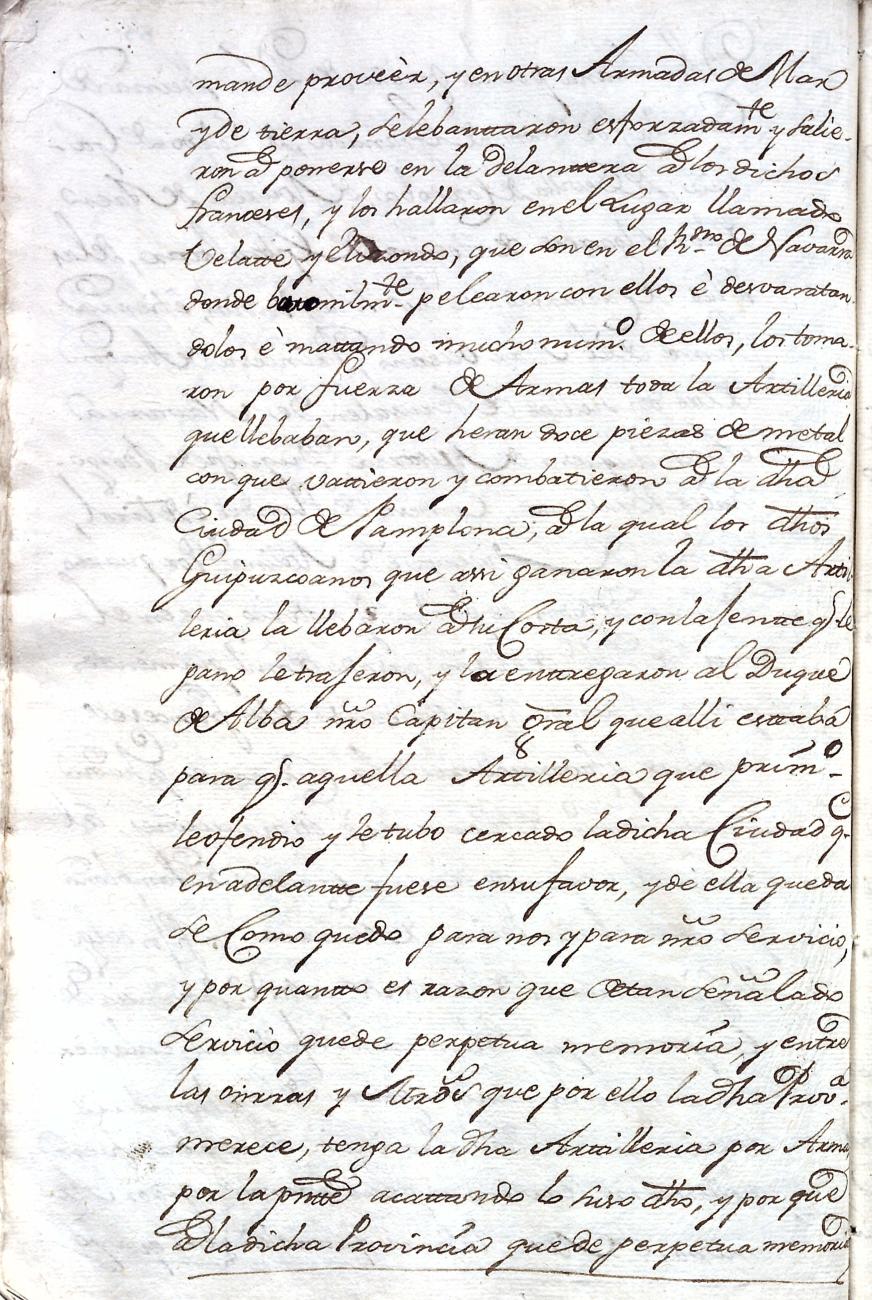 mande proveèr, y en otras Armadas de Mar
y de tierra, se lebanttaron esforzadam.te y salie-
ron à ponerse en la delanttera à los dichos
franceses, y los hallaron en el Lugar llamado
Velatte y Elizondo, que son en el R.no de Navarra
donde pelearon con ellos è desvaratan-
dolos è mattando mucho num.o de ellos, los toma-
ron por fuerza de Armas toda la Artilleria
que llebaban, que heran doce piezas de metal
con que vattieron y combatieron à la dha
Ciudad de Pamplona, à la qual los dhos
Guipuzcoanos que assi ganaron la dha Arti-
leria la llebaron à su Costa, y con la jente q.e le
para le trajeron, y la enttregaron al Duque
de Alba nro Capitan gral que alli esttaba
para q.e aquella Artilleria que prim.o
le ofendio y le tubo cercado la dicha Ciudad q.e
en adelantte fuese en su favor, y de ella queda
se Como quedo para nos y para nro servicio,
y por quantto es razon que de tan señalado
servicio quede perpetua memoria, y entre
las onrras y que por ello la dha Prov.a
merece, tenga la dha Artilleria por Arma
por la pntte acattando lo suso dho, y por que
à la dicha Provincia quede perpetua memoria